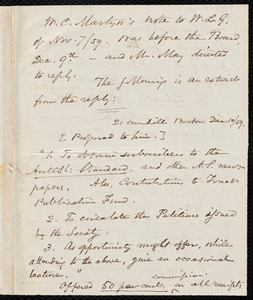 W. C. Martyn's note to W. L. G.
of Nov. 7/59. Was before the Board,
Dec. 9th — and Mr. May directed
to reply.
The following is an extract
from the reply:
21 Cornhill Boston Dec 10/59.
[Proposed to him.]
"1. To obtain subscribers to the
AntiSl. Standard, and other A. S. news-
papers. Also, Contributions to Tract
Publication Fund.
2. To circulate the Petitions issued
by the Society.
3. As opportunity might offer, while
attending to the above, give an occasional
lecture."
commission
Offered 50 per cent. on all receipts